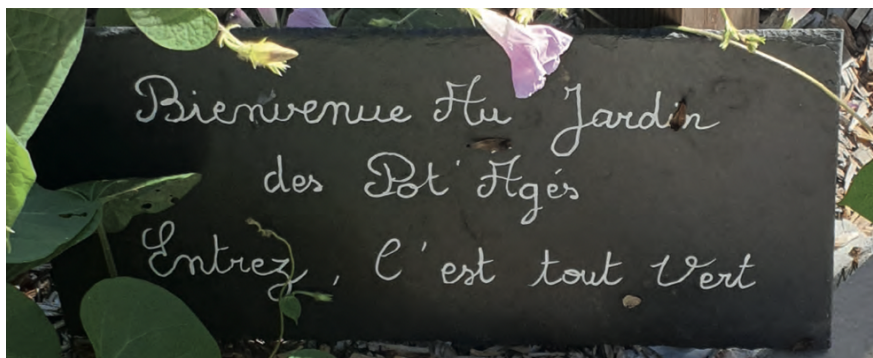 Bienvenue Au Jardin
des Pot'Agés
Entrez, C'est tout Vert